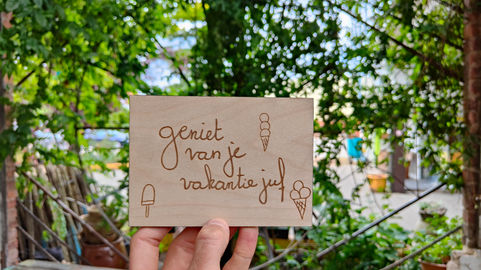 geniet
van je
vakantie juf